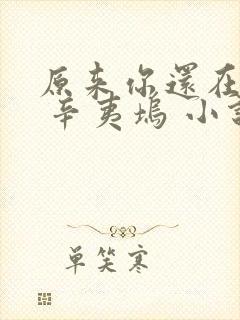 原来你還在
辛夷塢 小說
單笑寒